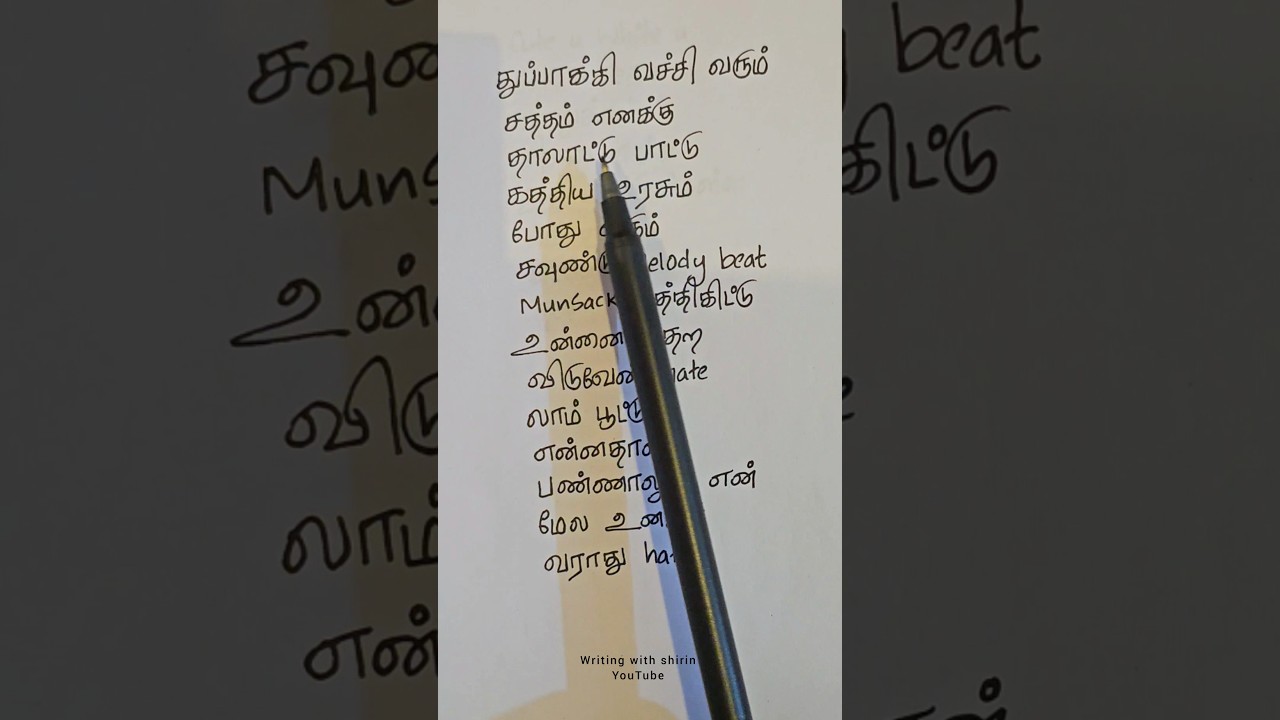 துப்பாக்கி வச்சி வரும்
சத்தம் எனக்கு
தாலாட்டு பாட்டு
கத்திய உரசும்
போது
சவுண்டு melody beat
Munsack
உன்னை
விடுவேன்
லாம் பூட்டு
பண்ணாலும் என்
மேல உன
வராது
Writing with shirin
YouTube